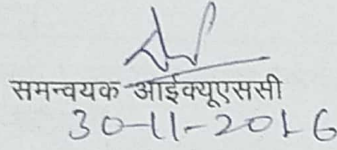 समन्वयक आईक्यूएससी
30-11-2016